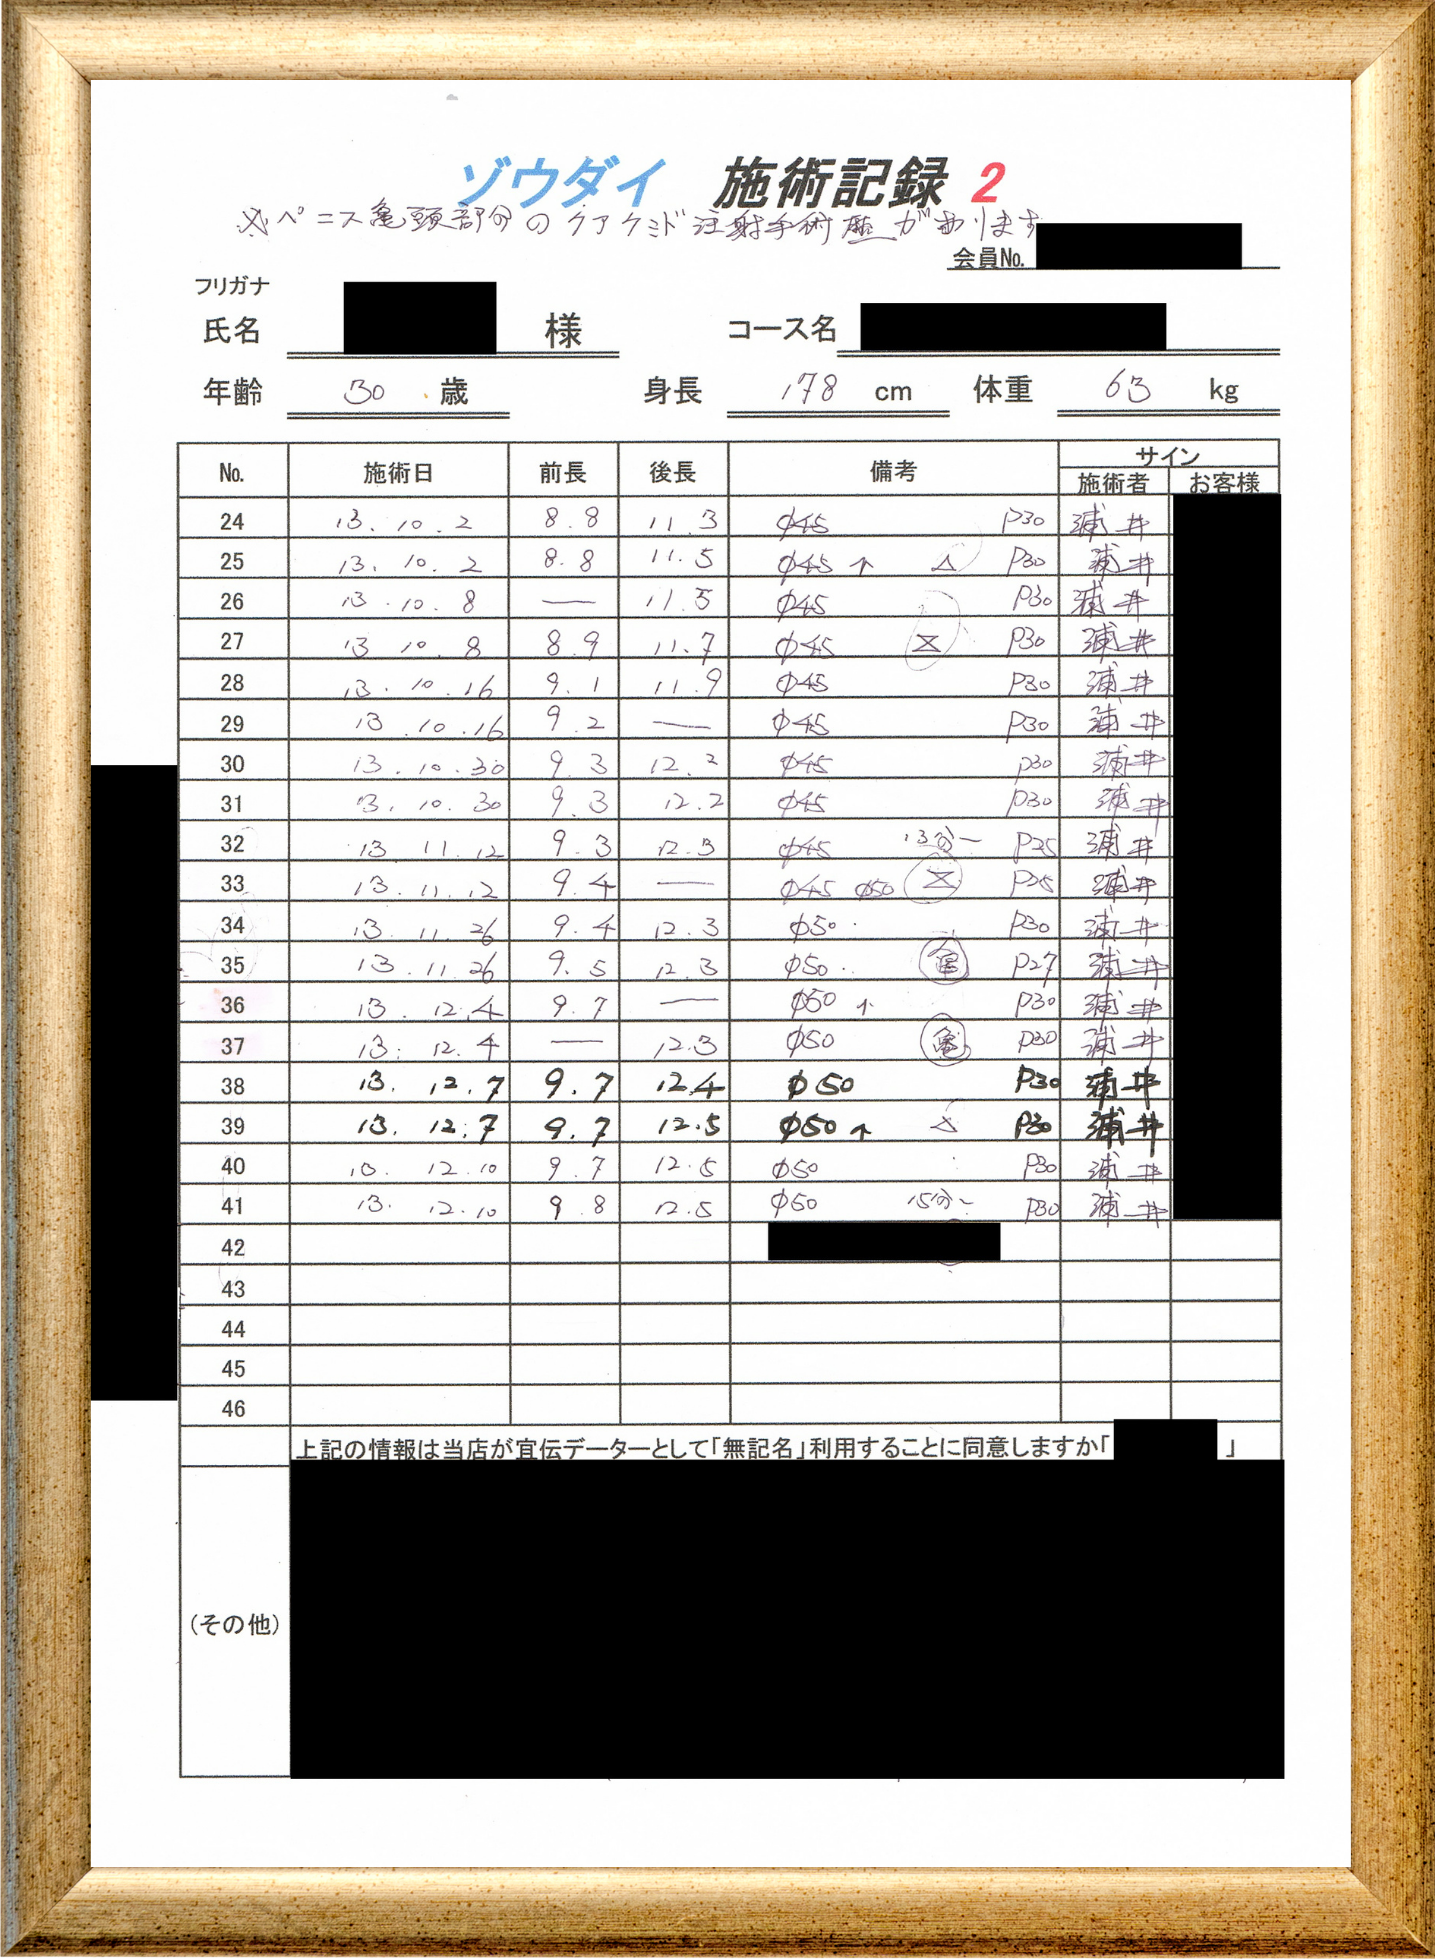 ゾウダイ 施術記録 2
※ペニス亀頭部分のクアクミド注射手術歴があります
会員No.
フリガナ
氏名 様 コース名
年齢 30 歳 身長 178 cm 体重 63 kg
No. 施術日 前長 後長 備考 サイン
施術者 お客様
24 13.10.2 8.8 11.3 φ45 P30 浦井
25 13.10.2 8.8 11.5 φ45 ↑ △ P30 浦井
26 13.10.8 — 11.5 φ45 P30 浦井
27 13 10.8 8.9 11.7 φ45 P30 浦井
28 13.10.16 9.1 11.9 φ45 P30 浦井
29 13.10.16 9.2 — φ45 P30 浦井
30 13.10.30 9.3 12.2 φ45 P30 浦井
31 13.10.30 9.3 12.2 φ45 P30 浦井
32 13 11.12 9.3 12.3 φ45 13分~ P25 浦井
33 13.11.12 9.4 — φ45 φ50 P25 浦井
34 13.11.26 9.4 12.3 φ50 P30 浦井
35 13.11.26 9.5 12.3 φ50 亀 P27 浦井
36 13.12.4 9.7 — φ50 ↑ P30 浦井
37 13.12.4 — 12.3 φ50 亀 P30 浦井
38 13.12.7 9.7 12.4 φ50 P30 浦井
39 13.12.7 9.7 12.5 φ50 ↑ △ P30 浦井
40 13.12.10 9.7 12.5 φ50 P30 浦井
41 13.12.10 9.8 12.5 φ50 15分~ P30 浦井
42
43
44
45
46
上記の情報は当店が宣伝データーとして「無記名」利用することに同意しますか「 」
(その他)